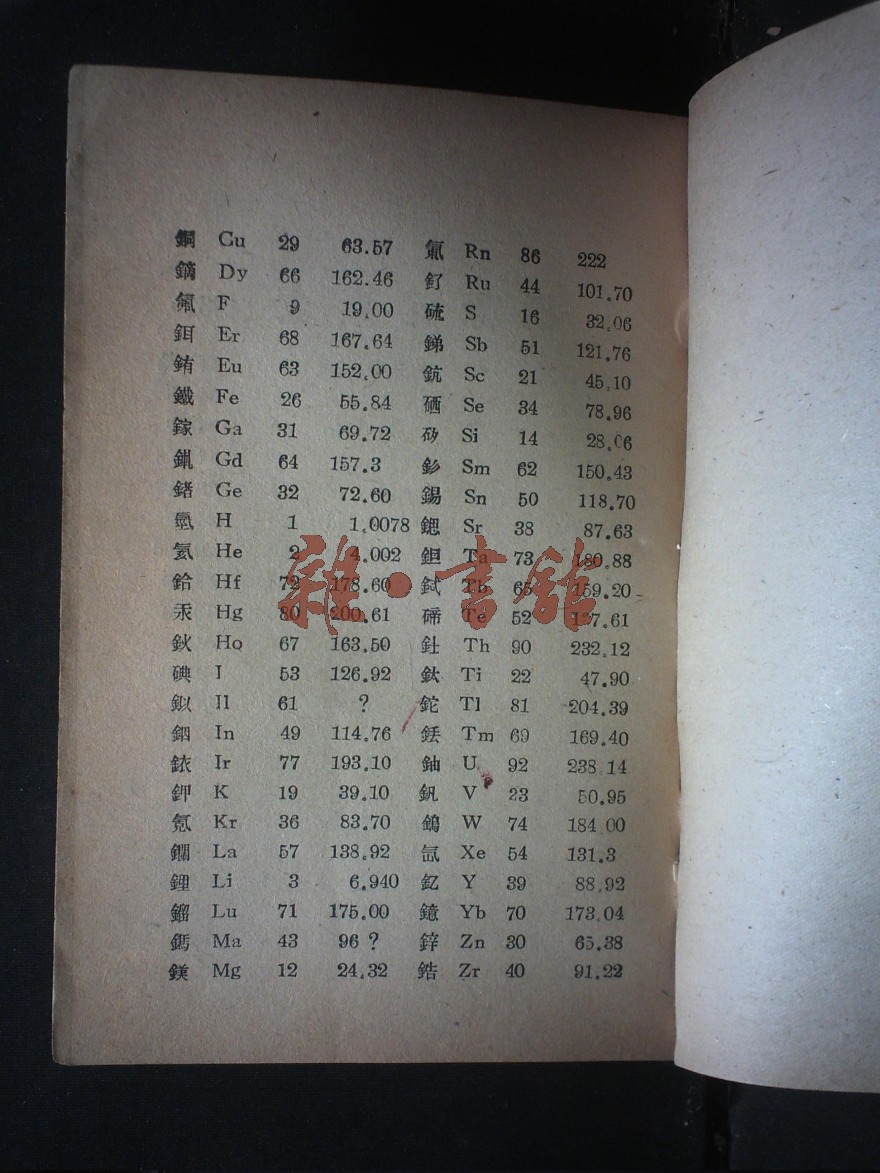 銅 Cu 29 63.57
鏑 Dy 66 162.46
氟 F 9 19.00
鉺 Er 68 167.64
銪 Eu 63 152.00
鐵 Fe 26 55.84
鎵 Ga 31 69.72
Gd 64 157.3
鍺 Ge 32 72.60
氫 H 1 1.0078
氦 He 2 4.002
鉿 Hf 72 178.60
汞 Hg 80 200.61
鈥 Ho 67 163.50
碘 I 53 126.92
鉯 Il 61 ?
銦 In 49 114.76
銥 Ir 77 193.10
鉀 K 19 39.10
氪 Kr 36 83.70
鑭 La 57 138.92
鋰 Li 3 6.940
鎦 Lu 71 175.00
鎷 Ma 43 96 ?
鎂 Mg 12 24.32
氡 Rn 86 222
釕 Ru 44 101.70
硫 S 16 32.06
銻 Sb 51 121.76
鈧 Sc 21 45.10
硒 Se 34 78.96
矽 Si 14 28.06
釤 Sm 62 150.43
錫 Sn 50 118.70
鍶 Sr 38 87.63
鉭 Ta 73 180.88
鋱 Tb 65 159.20
碲 Te 52 127.61
釷 Th 90 232.12
鈦 Ti 22 47.90
鉈 Tl 81 204.39
銩 Tm 69 169.40
鈾 U 92 238.14
釩 V 23 50.95
鎢 W 74 184.00
氙 Xe 54 131.3
釔 Y 39 88.92
鐿 Yb 70 173.04
鋅 Zn 30 65.38
鋯 Zr 40 91.22
雜·書館